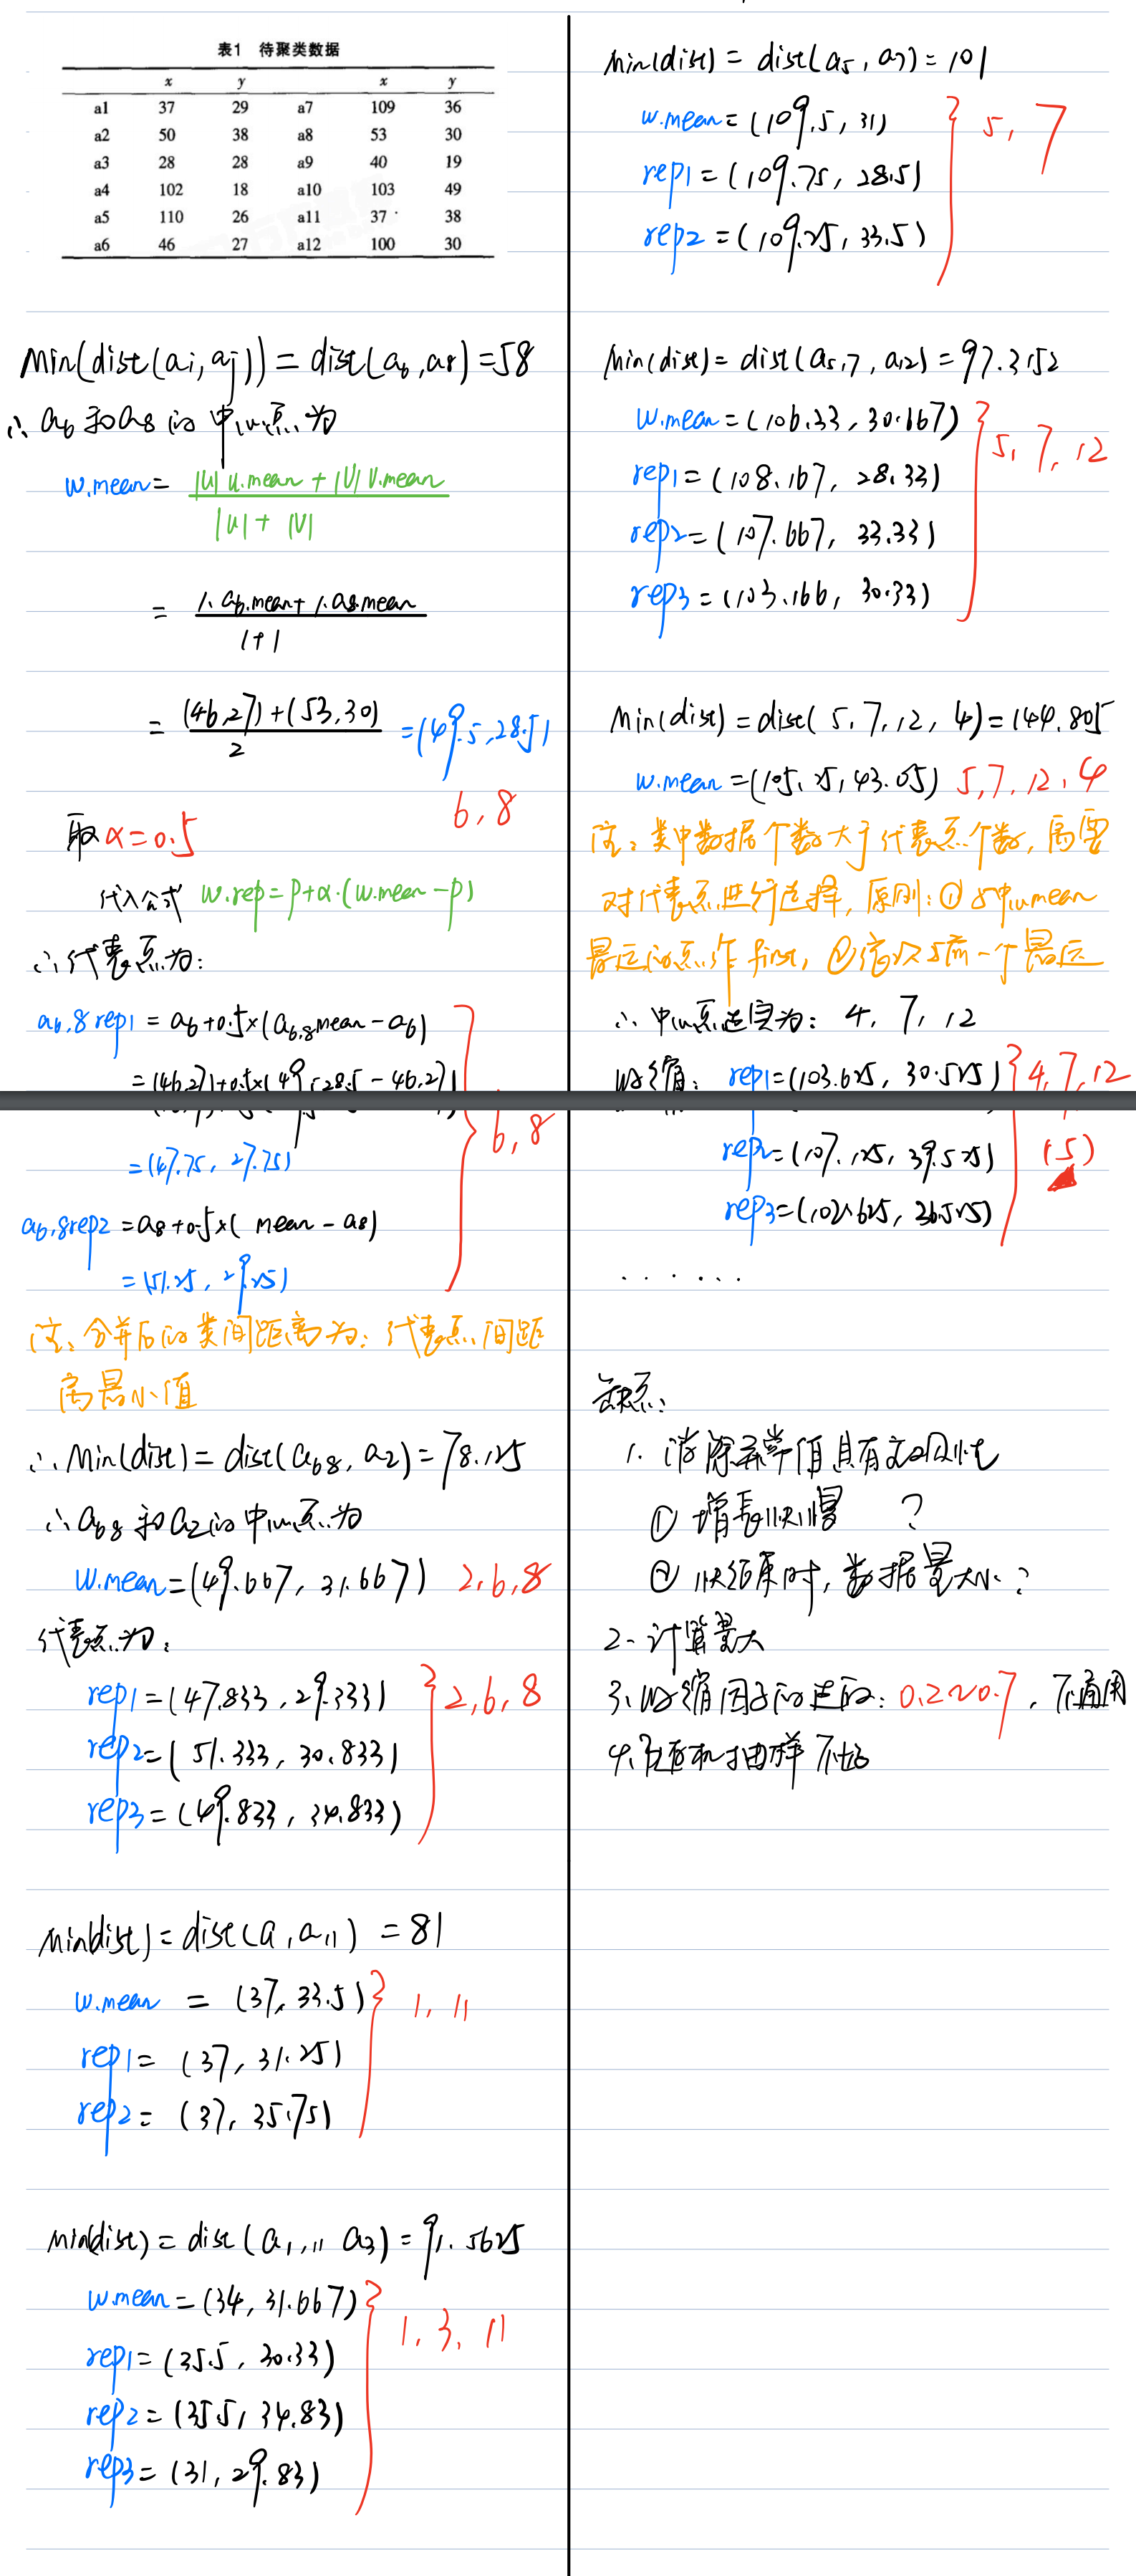 表1 待聚类数据
x y x y
a1 37 29 a7 109 36
a2 50 38 a8 53 30
a3 28 28 a9 40 19
a4 102 18 a10 103 49
a5 110 26 a11 37 38
a6 46 27 a12 100 30
Min(dist(ai,aj)) = dist(a6,a8) = 58
∴ a6和a8的中心点为
w.mean = |u|u.mean + |v|v.mean
|u| + |v|
= 1·a6.mean + 1·a8.mean
1+1
= (46,27)+(53,30) = (49.5,28.5)
2
6,8
取α=0.5
代入公式 w.rep = p+α·(w.mean-p)
∴代表点为:
a6,8 rep1 = a6+0.5×(a6,8mean - a6)
= (46,27)+0.5×(49.5,28.5 - 46,27)
= (47.75, 27.75)
6,8
a6,8rep2 = a8+0.5×( mean - a8)
= (51.25, 29.25)
注:合并后的类间距离为:代表点间距
离最小值
∴ Min(dist) = dist(a68, a2) = 78.125
∴ a68和a2的中心点为
w.mean = (49.667, 31.667) 2,6,8
代表点为:
rep1 = (47.833, 29.333) 2,6,8
rep2 = (51.333, 30.833)
rep3 = (49.833, 34.833)
Min(dist) = dist(a1,a11) = 81
w.mean = (37, 33.5) 1, 11
rep1 = (37, 31.25)
rep2 = (37, 35.75)
Min(dist) = dist(a1,11 a3) = 91.5625
w.mean = (34, 31.667)
1, 3, 11
rep1 = (35.5, 30.33)
rep2 = (35.5, 34.83)
rep3 = (31, 29.83)
Min(dist) = dist(a5, a7) = 101
w.mean = (109.5, 31) 5, 7
rep1 = (109.75, 28.5)
rep2 = (109.25, 33.5)
Min(dist) = dist(a5,7, a12) = 97.3152
w.mean = (106.33, 30.667)
5, 7, 12
rep1 = (108.167, 28.33)
rep2 = (107.667, 33.33)
rep3 = (103.166, 30.33)
Min(dist) = dist(5,7,12,4) = 144.805
w.mean = (105.25, 43.05) 5,7,12,4
注:类中数据个数大于代表点个数,需要
对代表点进行选择,原则:①与中心mean
最远的点作first, ②依次与前一个最远
∴ 中心点选定为: 4, 7, 12
收缩: rep1 = (103.625, 30.525) 4,7,12
rep2 = (107.125, 39.525) (5)
rep3 = (102.625, 36.525)
......
缺点:
1. 消除异常值具有局限性
① 增长快慢 ?
② 快结束时, 数据量大小?
2. 计算量大
3. 收缩因子的选取: 0.2~0.7, 不通用
4. 随机抽样不好